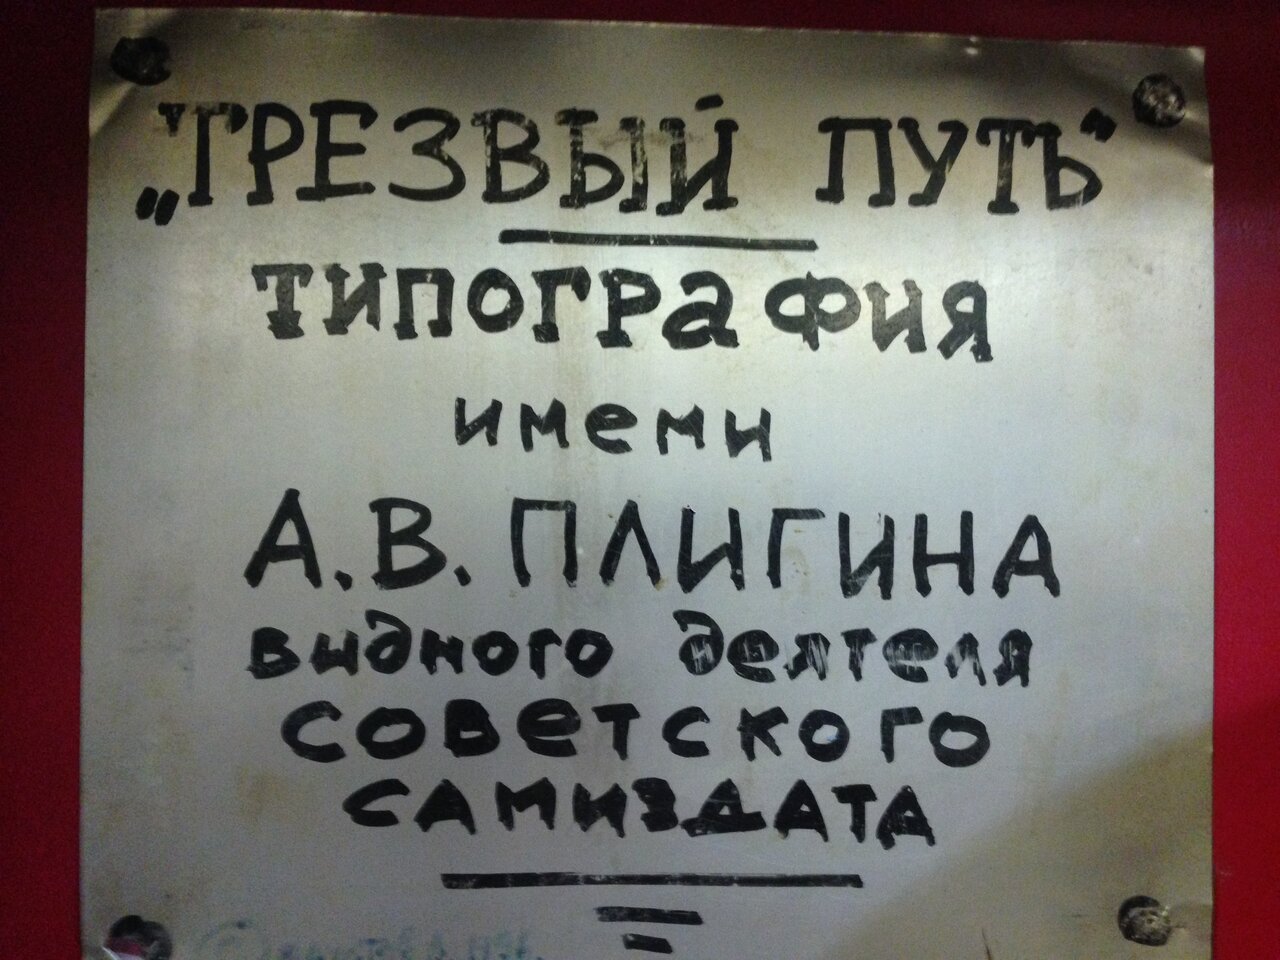 „ТРЕЗВЫЙ ПУТЬ"
ТИПОГРАФИЯ
имени
А.В. ПЛИГИНА
видного деятеля
советского
самиздата